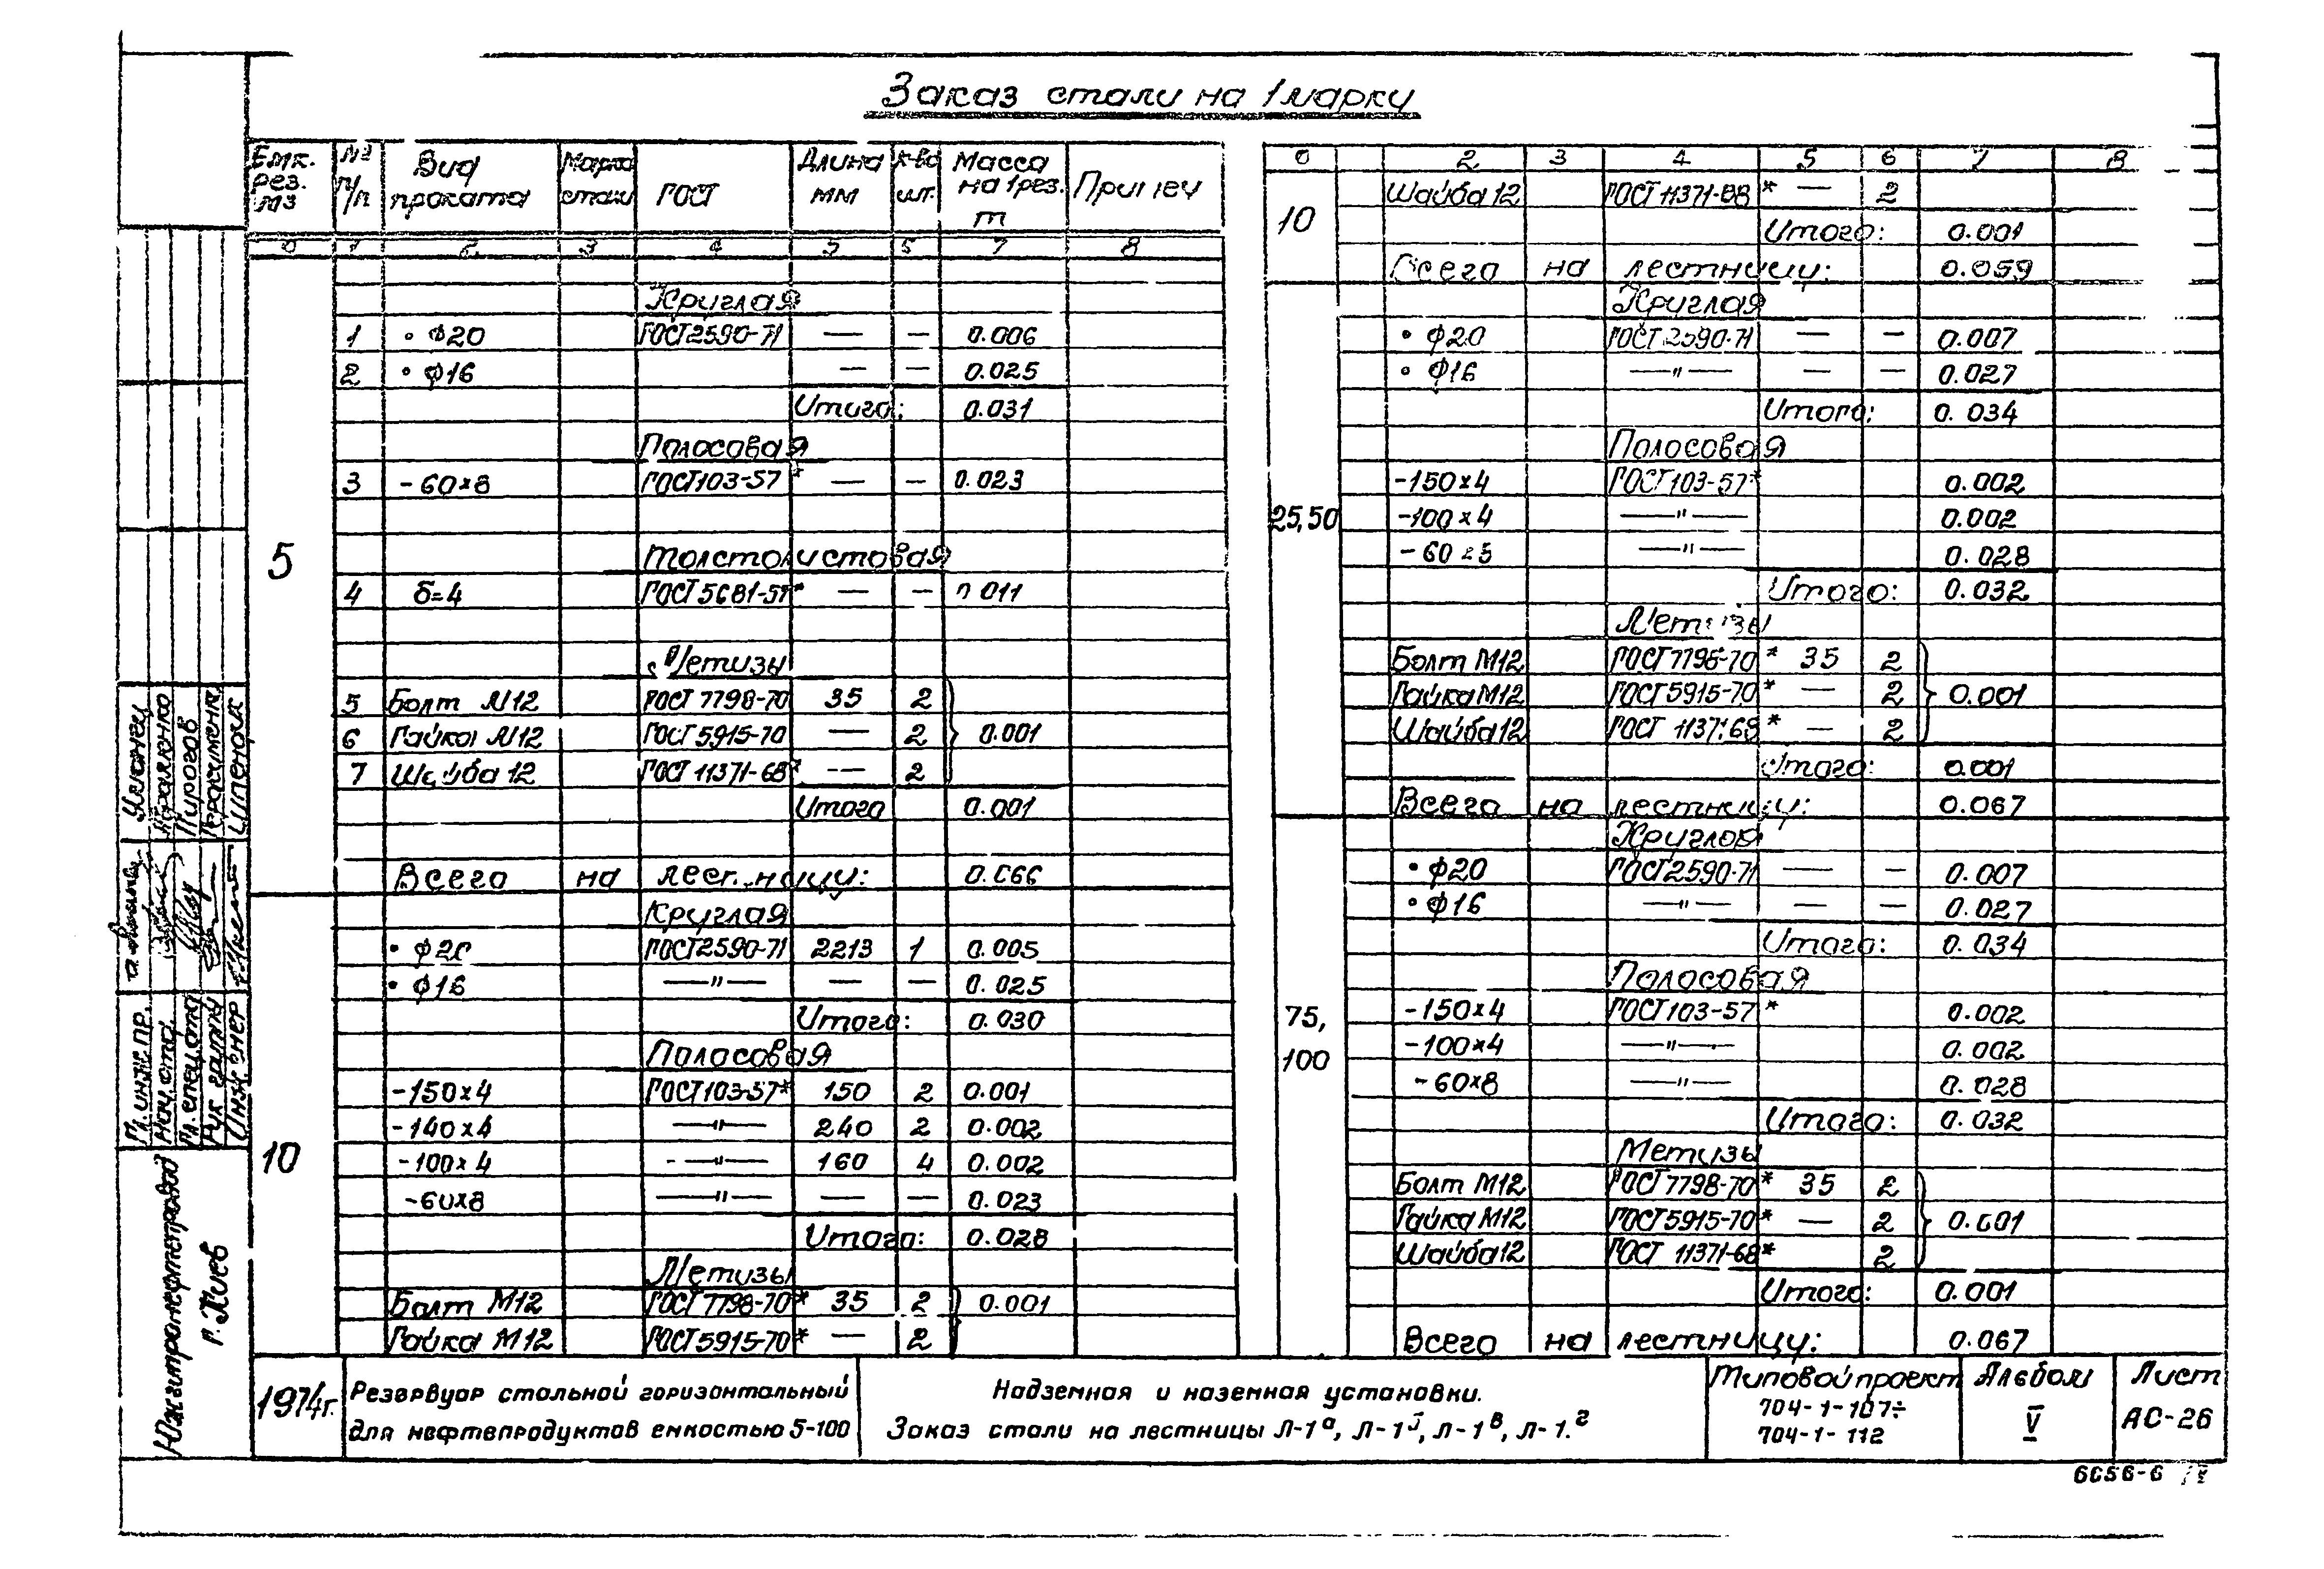 Заказ стали на 1 марку
Емк. рез. м3 № п/п Вид проката Марка стали ГОСТ Длина мм К-во шт. Масса на 1 рез. т Примеч
0 1 2 3 4 5 6 7 8
Круглая
1 • ф20 ГОСТ2590-71 — — 0.006
2 • ф16 — — 0.025
Итого: 0.031
Полосовая
3 -60х8 ГОСТ103-57* — — 0.023
5
Толстолистовая
4 δ=4 ГОСТ5681-57* — — 0.011
Метизы
5 Болт М12 ГОСТ 7798-70 35 2
6 Гайка М12 ГОСТ5915-70 — 2 0.001
7 Шайба 12 ГОСТ 11371-68* — 2
Итого 0.001
Всего на лестницу: 0.066
Круглая
• ф20 ГОСТ2590-71 2213 1 0.005
• ф16 —"— — — 0.025
Итого: 0.030
Полосовая
-150х4 ГОСТ103-57* 150 2 0.001
-140х4 —"— 240 2 0.002
10 -100х4 —"— 160 4 0.002
-60х8 —"— — — 0.023
Итого: 0.028
Метизы
Болт М12 ГОСТ 7798-70* 35 2 0.001
Гайка М12 ГОСТ5915-70* — 2
0 2 3 4 5 6 7 8
Шайба 12 ГОСТ 11371-68* — 2
10 Итого: 0.001
Всего на лестницу: 0.059
Круглая
• ф20 ГОСТ 2590-71 — — 0.007
• ф16 —"— — — 0.027
Итого: 0.034
Полосовая
-150х4 ГОСТ103-57* 0.002
25,50 -100х4 —"— 0.002
-60 5 —"— 0.028
Итого: 0.032
Метизы
Болт М12 ГОСТ7798-70* 35 2
Гайка М12 ГОСТ5915-70* — 2 0.001
Шайба 12 ГОСТ 11371-68* — 2
Итого: 0.001
Всего на лестницу: 0.067
Круглая
• ф20 ГОСТ2590-71 — — 0.007
• ф16 —"— — — 0.027
Итого: 0.034
Полосовая
75, -150х4 ГОСТ103-57* 0.002
100 -100х4 —"— 0.002
-60х8 —"— 0.028
Итого: 0.032
Метизы
Болт М12 ГОСТ7798-70* 35 2
Гайка М12 ГОСТ5915-70* — 2 0.001
Шайба 12 ГОСТ 11371-68* 2
Итого: 0.001
Всего на лестницу: 0.067
Гл. инж. пр.
Нач. отд.
Гл. спец. отд. Пирогов
Рук. группы
Инженер
Южгипронефтепровод
г. Киев
1974г.
Резервуар стальной горизонтальный
для нефтепродуктов емкостью 5-100
Надземная и наземная установки.
Заказ стали на лестницы Л-1а, Л-1б, Л-1в, Л-1.г
Типовой проект
704-1-107÷
704-1-112
Альбом
V
Лист
АС-26
6056-6